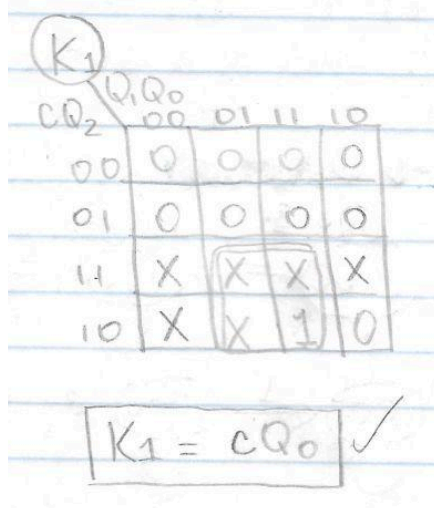 K1
Q1Q0
CQ2 00 01 11 10
00 0 0 0 0
01 0 0 0 0
11 X X X X
10 X X 1 0
K1 = CQ0 ✓